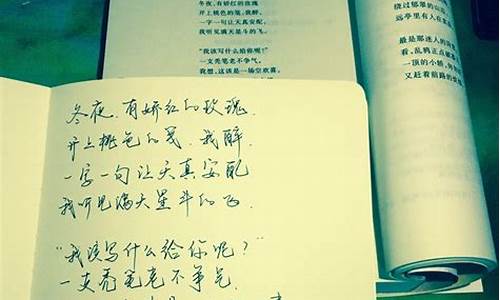 冬夜,有娇红的玫瑰
开上桃色的笺,我醉,
一字一句让天真安配
我听见满天星斗的飞
“我该写什么给你呢?”
一支秃笔老不争气,
冬夜,有娇红的玫瑰
开上桃色的笺,我醉,
一字一句让天真安配,
我听见满天星斗的飞。
“我该写什么给你呢?”
一支秃笔老不争气,
我想,这该是一场空欢喜,
绕过郁翠的
远亭里有人在
最是那迷人的
看,乱鸦正
一顶的小轿,
又赶着前路的